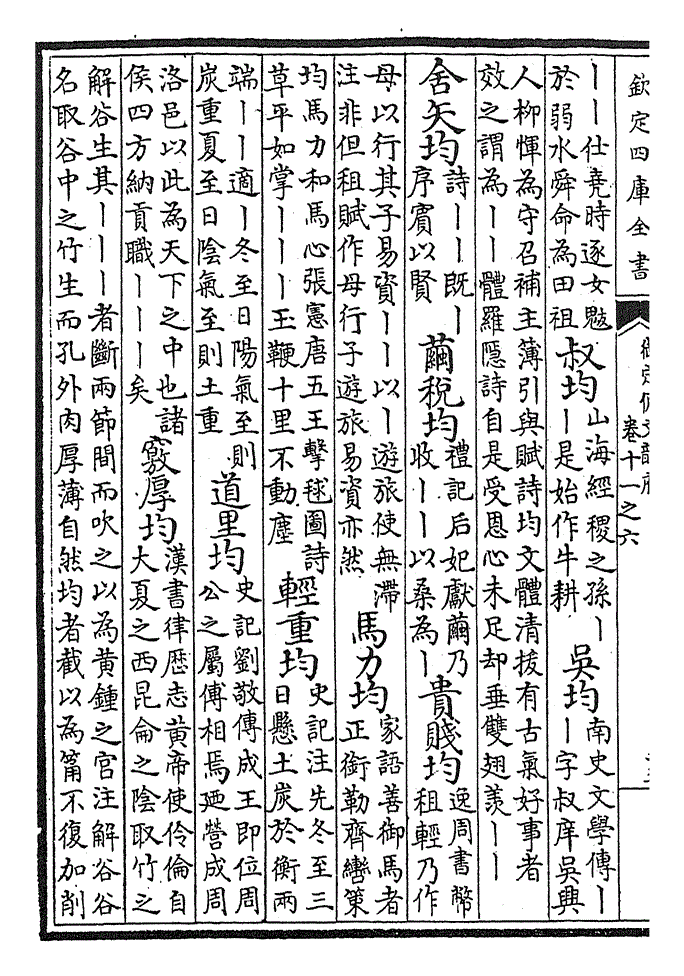 欽定四庫全書
御定佩文韻府
卷十一之六
｜｜仕堯時逐女魃
於弱水舜命為田祖
叔均
山海經稷之孫｜
｜是始作牛耕
吳均
南史文學傳｜
｜字叔庠吳興
人柳惲為守召補主簿引與賦詩均文體清拔有古氣好事者
效之謂為｜｜體羅隱詩自是受恩心未足却垂雙翅羨｜｜
舍矢均
詩｜｜既｜
序賓以賢
繭稅均
禮記后妃獻繭乃
收｜｜以桑為｜
貴賤均
逸周書幣
租輕乃作
母以行其子易資｜｜以｜遊旅使無滯
注非但租賦作母行子遊旅易資亦然
馬力均
家語善御馬者
正銜勒齊轡策
均馬力和馬心張憲唐五王擊毬圖詩
草平如掌｜｜｜王鞭十里不動塵
輕重均
史記注先冬至三
日懸土炭於衡兩
端｜｜適｜冬至日陽氣至則
炭重夏至日陰氣至則土重
道里均
史記劉敬傳成王即位周
公之屬傅相焉廼營成周
洛邑以此為天下之中也諸
侯四方納貢職｜｜｜矣
竅厚均
漢書律歴志黄帝使伶倫自
大夏之西昆侖之陰取竹之
解谷生其｜｜｜者斷兩節間而吹之以為黄鍾之宫注解谷谷
名取谷中之竹生而孔外肉厚薄自然均者截以為筩不復加削